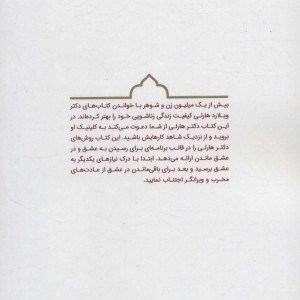 بیش از یک میلیون زن و شوهر با خواندن کتاب‌های دکتر
ویلارد هارلی کیفیت زندگی زناشویی خود را بهتر کرده‌اند. در
این کتاب دکتر هارلی از شما دعوت می‌کند به کلینیک او
بروید و از نزدیک شاهد کارهایش باشید. این کتاب روش‌های
دکتر هارلی را در قالب برنامه‌ای برای رسیدن به عشق و در
عشق ماندن ارائه می‌دهد. ابتدا با درک نیازهای یکدیگر به
عشق برسید و بعد برای باقی‌ماندن در عشق از عادت‌های
مخرب و ویرانگر اجتناب نمایید.